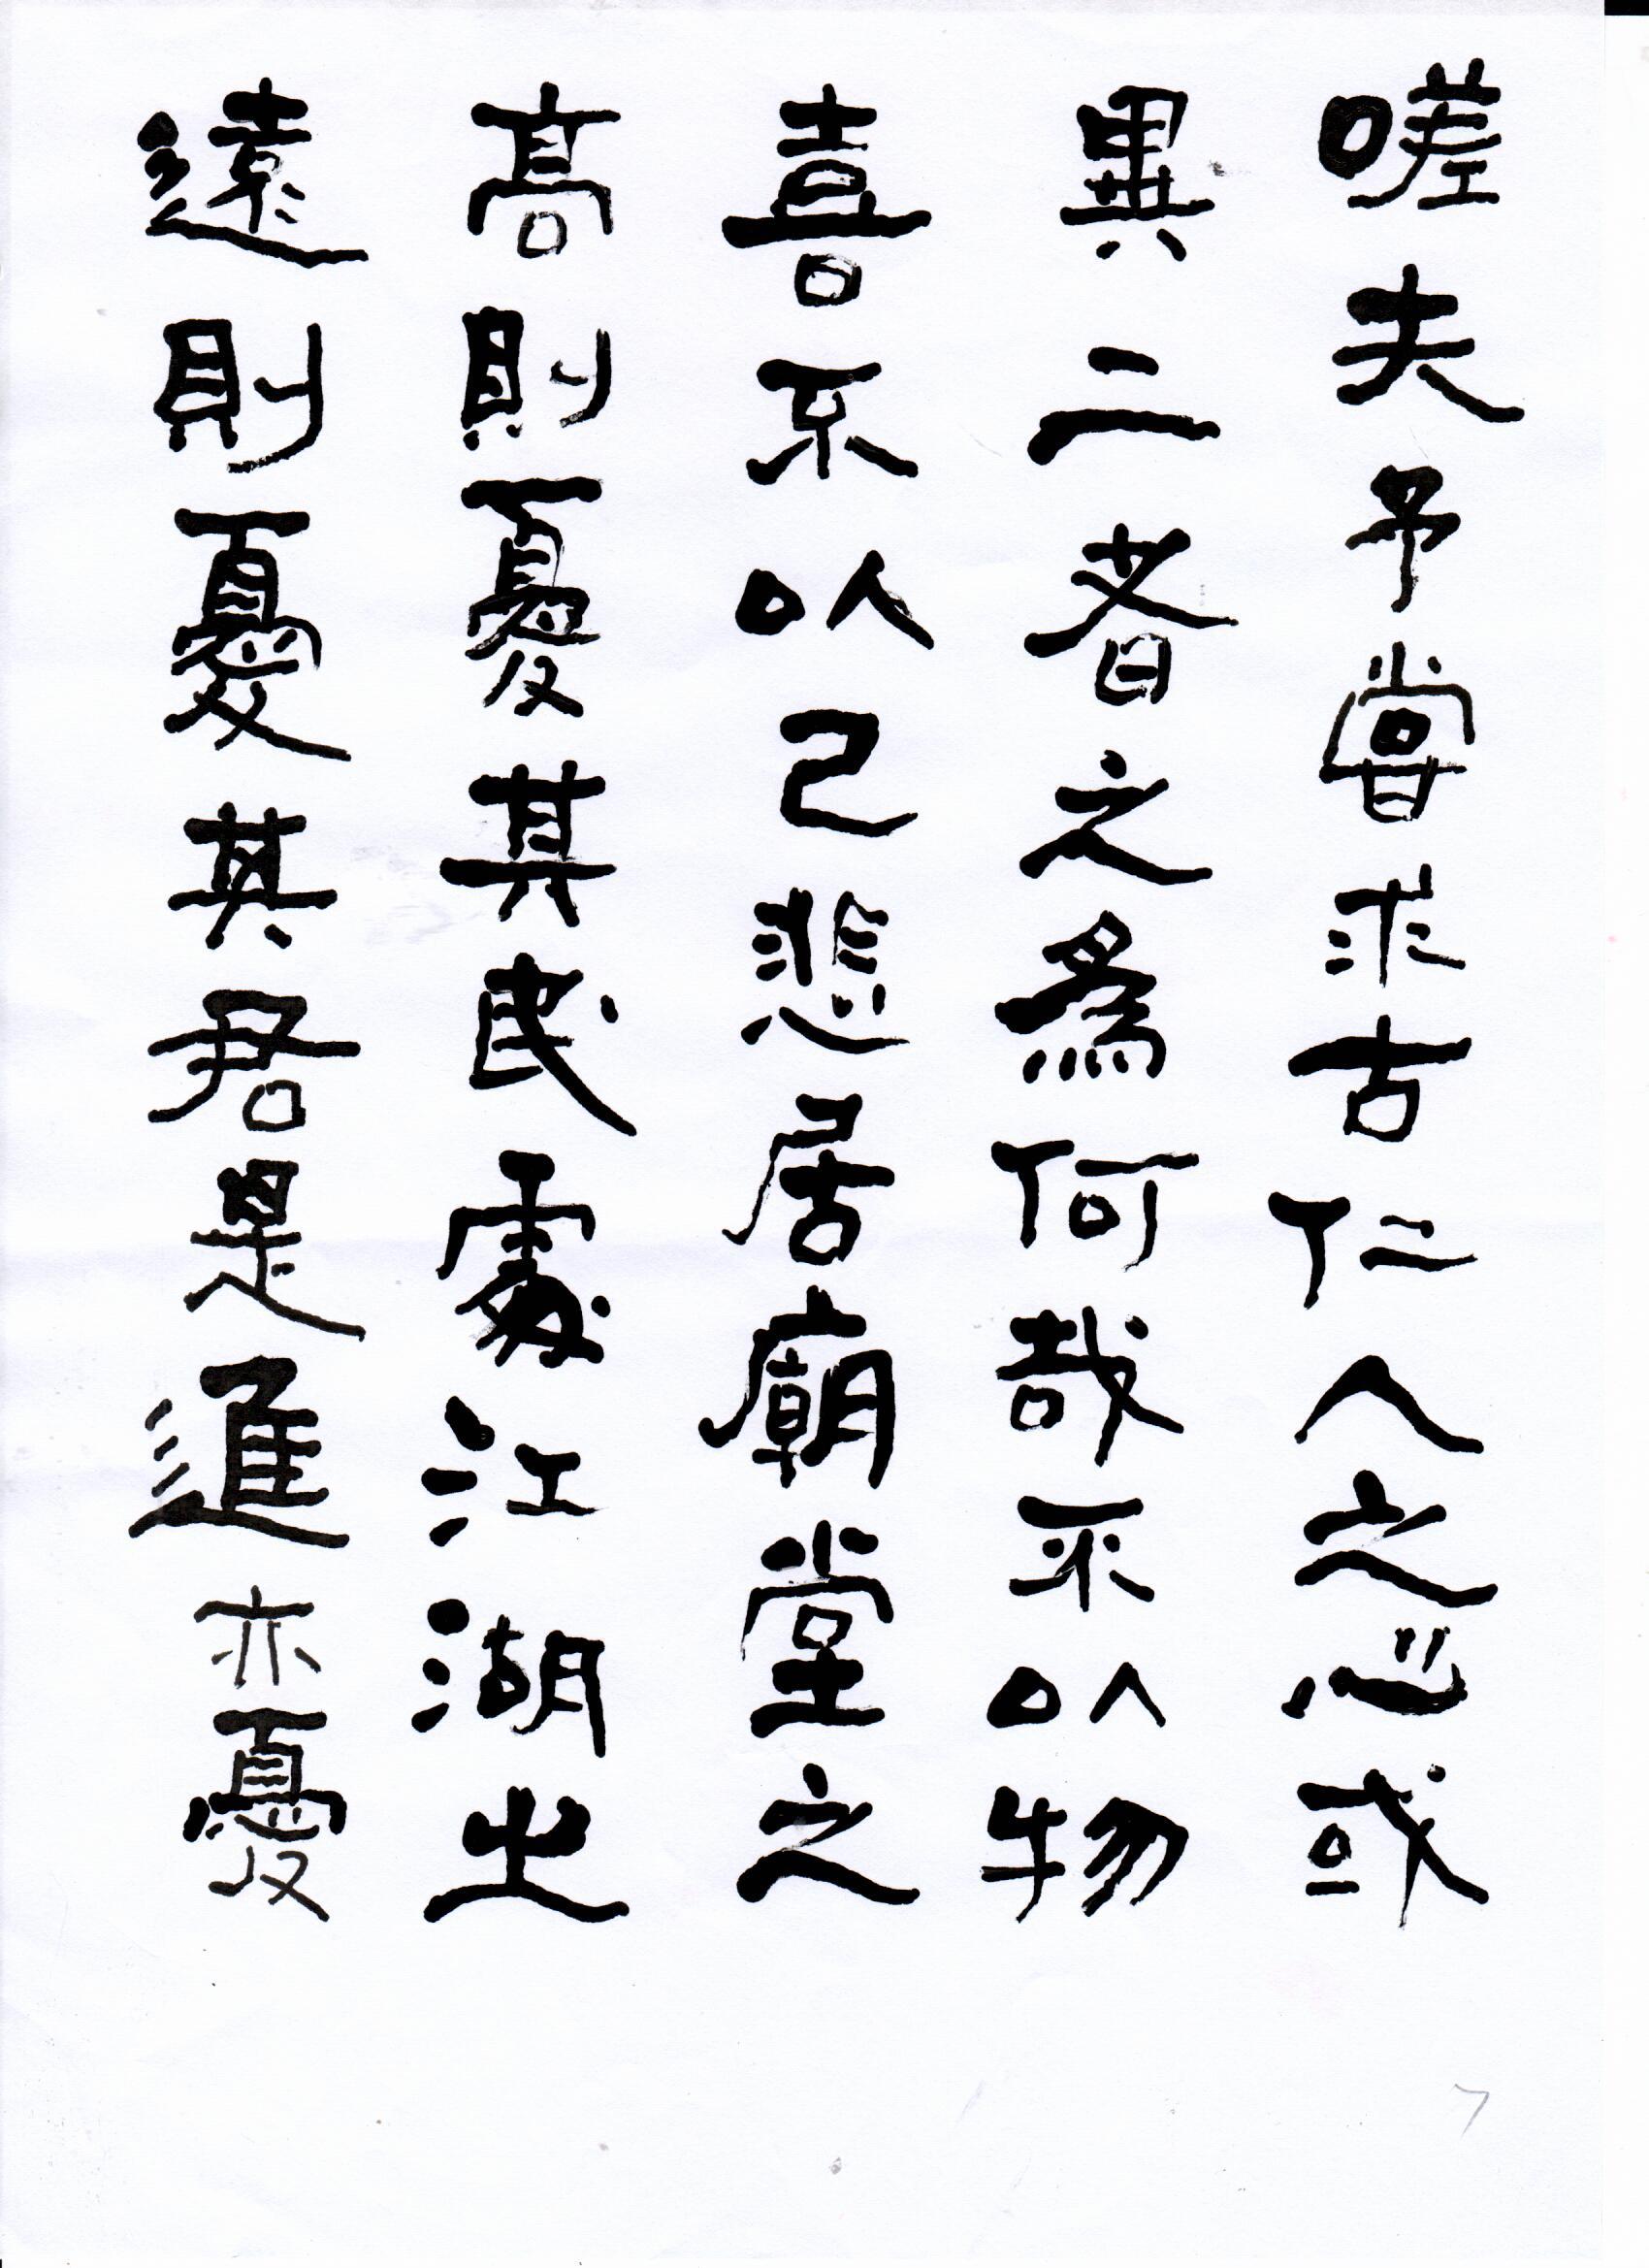 嗟夫予嘗求古仁人之心或
異二者之為何哉不以物
喜不以己悲居廟堂之
高則憂其民處江湖之
遠則憂其君是進亦憂
7